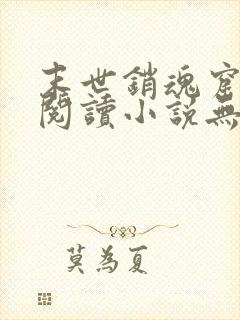 末世銷魂窟
閱讀小說無
莫為夏